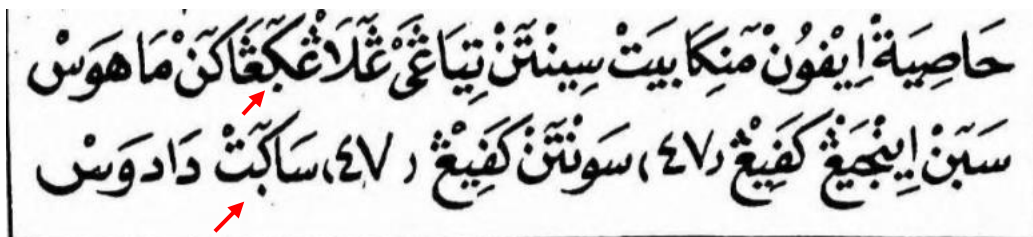 حَاصِيَةْ اِيْفُونْ مٓنِكَا بَيَتْ سِينْتٓنْ تِيَاڠَىْ ڠٓلَاڠْࢴٓڠَاكٓنْ مَاهَوَسْ
سَبٓنْ اِيْنْجَيْڠْ كَفِيْڠْ (٤٧) سَوْنْتٓنْ كَفِيْڠْ (٤٧) سَاࢴٓتْ دَادَوَسْ